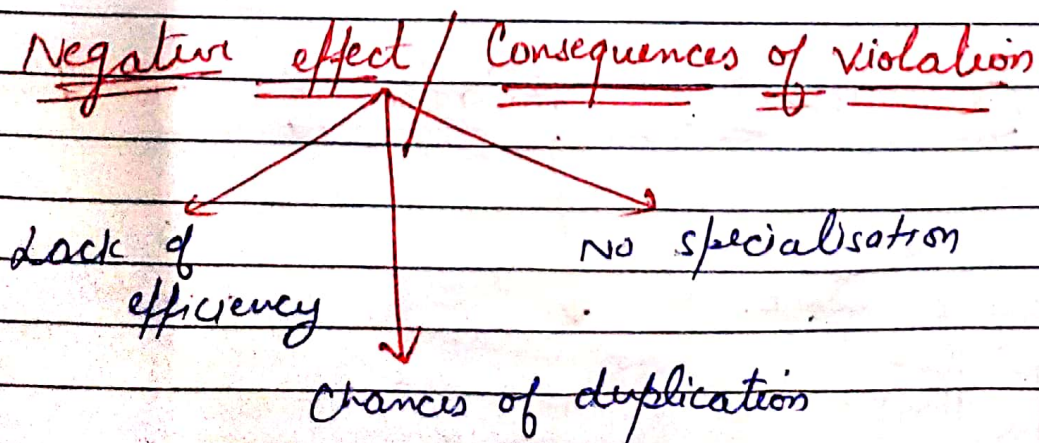 Negative effect / Consequences of violation
Lack of
efficiency
No specialisation
Chances of duplication